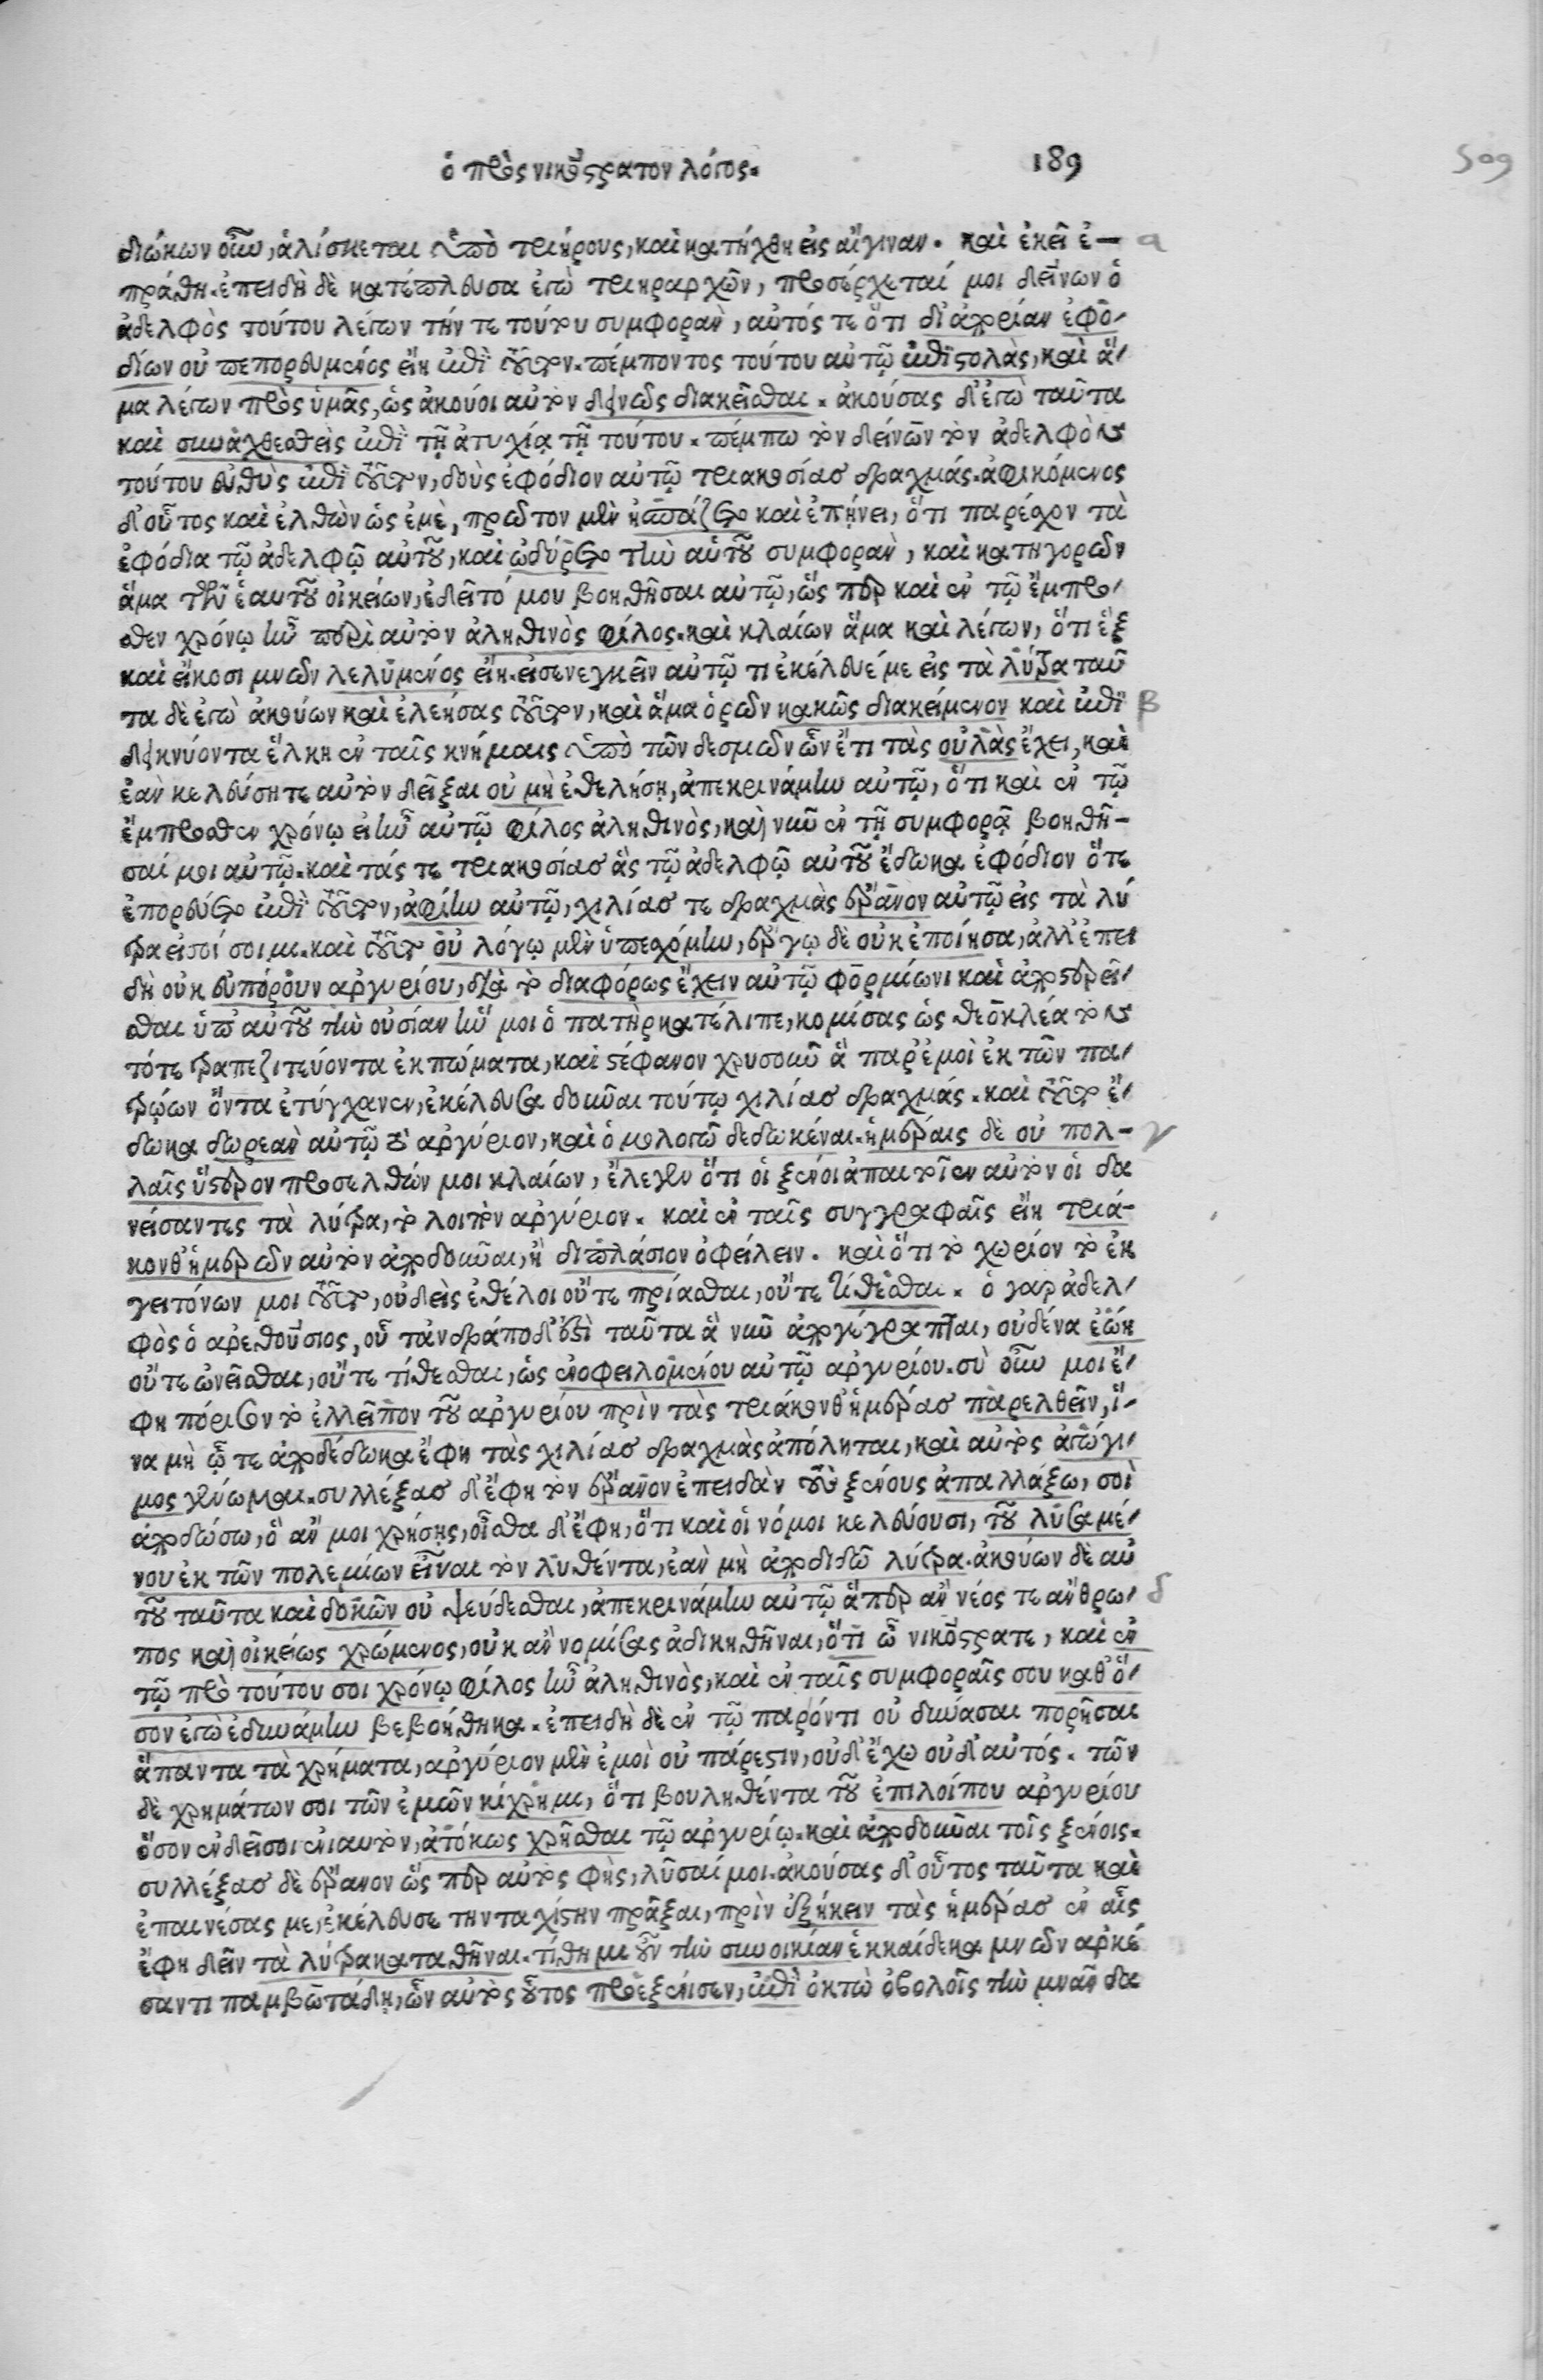 ὁ πρὸς νικόστρατον λόγος. 189
509
διώκων οὖν, ἁλίσκεται ὑπὸ τριήρους, καὶ κατήχθη εἰς αἴγιναν. καὶ ἐκεῖ ἐ- α
πράθη. ἐπειδὴ δὲ κατέπλευσα ἐγὼ τριηραρχῶν, προσέρχεταί μοι δείνων ὁ
ἀδελφὸς τούτου λέγων τήν τε τούτου συμφορὰν, αὐτός τε ὅτι δι' ἀπορίαν ἐφο-
δίων οὐ πεπορευμένος εἴη ἐπὶ τοῦτον. πέμποντος τούτου αὐτῷ ἐπιστολὰς, καὶ ἅ-
μα λέγων πρὸς ὑμᾶς, ὡς ἀκούοι αὐτὸν δεινῶς διακεῖσθαι. ἀκούσας δ' ἐγὼ ταῦτα
καὶ συναχθεσθεὶς ἐπὶ τῇ ἀτυχίᾳ τῇ τούτου. πέμπω τὸν δείνων τὸν ἀδελφὸν
τούτου εὐθὺς ἐπὶ τοῦτον, δοὺς ἐφόδιον αὐτῷ τριακοσίας δραχμάς. ἀφικόμενος
δ' οὗτος καὶ ἐλθὼν ὡς ἐμὲ, πρῶτον μὲν ἠσπάζετο καὶ ἐπῄνει, ὅτι παρέσχον τὰ
ἐφόδια τῷ ἀδελφῷ αὐτοῦ, καὶ ὠδύρετο τὴν αὑτοῦ συμφορὰν, καὶ κατηγορῶν
ἅμα τῶν ἑαυτοῦ οἰκείων, ἐδεῖτό μου βοηθῆσαι αὐτῷ, ὥς περ καὶ ἐν τῷ ἔμπρο-
σθεν χρόνῳ ἦν περὶ αὐτὸν ἀληθινὸς φίλος. καὶ κλαίων ἅμα καὶ λέγων, ὅτι ἓξ
καὶ εἴκοσι μνῶν λελυμένος εἴη. εἰσενεγκεῖν αὐτῷ τι ἐκέλευέ με εἰς τὰ λύτρα ταῦ
τα δὲ ἐγὼ ἀκούων καὶ ἐλεήσας τοῦτον, καὶ ἅμα ὁρῶν κακῶς διακείμενον καὶ ἐπι β
δεικνύοντα ἕλκη ἐν ταῖς κνήμαις ὑπὸ τῶν δεσμῶν ὧν ἔτι τὰς οὐλὰς ἔχει, καὶ
ἐὰν κελεύσητε αὐτὸν δεῖξαι οὐ μὴ ἐθελήσῃ, ἀπεκρινάμην αὐτῷ, ὅτι καὶ ἐν τῷ
ἔμπροσθεν χρόνῳ εἴην αὐτῷ φίλος ἀληθινὸς, καὶ νῦν ἐν τῇ συμφορᾷ βοηθή-
σαίμι αὐτῷ. καὶ τάς τε τριακοσίας ἃς τῷ ἀδελφῷ αὐτοῦ ἔδωκα ἐφόδιον ὅτε
ἐπορεύετο ἐπὶ τοῦτον, ἀφίην αὐτῷ, χιλίας τε δραχμὰς ἔρανον αὐτῷ εἰς τὰ λύ
τρα εἰσοίσοιμι. καὶ τοῦτο οὐ λόγῳ μὲν ὑπεσχόμην, ἔργῳ δὲ οὐκ ἐποίησα, ἀλλ' ἐπει
δὴ οὐκ εὐπόρουν ἀργυρίου, διὰ τὸ διαφόρως ἔχειν αὐτῷ φορμίωνι καὶ ἀποστερεῖ-
σθαι ὑπ' αὐτοῦ τὴν οὐσίαν ἥν μοι ὁ πατὴρ κατέλιπε, κομίσας ὡς θεοκλέα τὸν
τότε τραπεζιτεύοντα ἐκπώματα, καὶ στέφανον χρυσοῦν ἃ παρ' ἐμοὶ ἐκ τῶν πα-
τρῴων ὄντα ἐτύγχανεν, ἐκέλευσα δοῦναι τούτῳ χιλίας δραχμάς. καὶ τοῦτο ἔ-
δωκα δωρεὰν αὐτῷ τὸ ἀργύριον, καὶ ὁμολογῶ δεδωκέναι. ἡμέραις δὲ οὐ πολ- γ
λαῖς ὕστερον προσελθών μοι κλαίων, ἔλεγεν ὅτι οἱ ξένοι ἀπαιτοῖεν αὐτὸν οἱ δα
νείσαντες τὰ λύτρα, τὸ λοιπὸν ἀργύριον. καὶ ἐν ταῖς συγγραφαῖς εἴη τριά-
κονθ' ἡμερῶν αὐτὸν ἀποδοῦναι, ἢ διπλάσιον ὀφείλειν. καὶ ὅτι τὸ χωρίον τὸ ἐκ
γειτόνων μοι τοῦτο, οὐδεὶς ἐθέλοι οὔτε πρίασθαι, οὔτε τίθεσθαι. ὁ γὰρ ἀδελ-
φὸς ὁ ἀρεθούσιος, οὗ τἀνδράποδ' ἐστὶ ταῦτα ἃ νῦν ἀπογέγραπται, οὐδένα ἐῴη
οὔτε ὠνεῖσθαι, οὔτε τίθεσθαι, ὡς ἐνοφειλομένου αὐτῷ ἀργυρίου. σὺ οὖν μοι ἔ-
φη πόρισον τὸ ἐλλεῖπον τοῦ ἀργυρίου πρὶν τὰς τριάκονθ' ἡμέρας παρελθεῖν, ἵ-
να μὴ ᾧ τε ἀποδέδωκα ἔφη τὰς χιλίας δραχμὰς ἀπόληται, καὶ αὐτὸς ἀγώγι-
μος γένωμαι. συλλέξας δ' ἔφη τὸν ἔρανον ἐπειδὰν τοὺς ξένους ἀπαλλάξω, σοὶ
ἀποδώσω, ὃ ἄν μοι χρήσῃς, οἶσθα δ' ἔφη, ὅτι καὶ οἱ νόμοι κελεύουσι, τοῦ λυσαμέ-
νου ἐκ τῶν πολεμίων εἶναι τὸν λυθέντα, ἐὰν μὴ ἀποδιδῶ λύτρα. ἀκούων δὲ αὐ
τοῦ ταῦτα καὶ δοκῶν οὐ ψεύδεσθαι, ἀπεκρινάμην αὐτῷ ἅπερ ἂν νέος τε ἄνθρω- δ
πος καὶ οἰκείως χρώμενος, οὐκ ἂν νομίσας ἀδικηθῆναι, ὅτι ὦ νικόστρατε, καὶ ἐν
τῷ πρὸ τούτου σοι χρόνῳ φίλος ἦν ἀληθινὸς, καὶ ἐν ταῖς συμφοραῖς σου καθ' ὅ-
σον ἐγὼ ἐδυνάμην βεβοήθηκα. ἐπειδὴ δὲ ἐν τῷ παρόντι οὐ δύνασαι πορῆσαι
ἅπαντα τὰ χρήματα, ἀργύριον μὲν ἐμοὶ οὐ πάρεστιν, οὐδ' ἔχω οὐδ' αὐτός. τῶν
δὲ χρημάτων σοι τῶν ἐμῶν κίχρημι, ὅτι βουληθέντα τοῦ ἐπιλοίπου ἀργυρίου
ὅσον ἐνδεῖ σοι ἐνιαυτὸν, ἀτόκως χρῆσθαι τῷ ἀργυρίῳ. καὶ ἀποδοῦναι τοῖς ξένοις.
συλλέξας δὲ ἔρανον ὥς περ αὐτὸς φὴς, λῦσαί μοι. ἀκούσας δ' οὗτος ταῦτα καὶ
ἐπαινέσας με, ἐκέλευσε τὴν ταχίστην πρᾶξαι, πρὶν ἐξήκειν τὰς ἡμέρας ἐν αἷς
ἔφη δεῖν τὰ λύτρα καταθῆναι. τίθημι οὖν τὴν συνοικίαν ἑκκαίδεκα μνῶν ἀρκέ
σαντι παμβωτάδῃ, ὧν αὐτὸς οὗτος προεξένισεν, ἐπὶ ὀκτὼ ὀβολοῖς τὴν μνᾶν δα